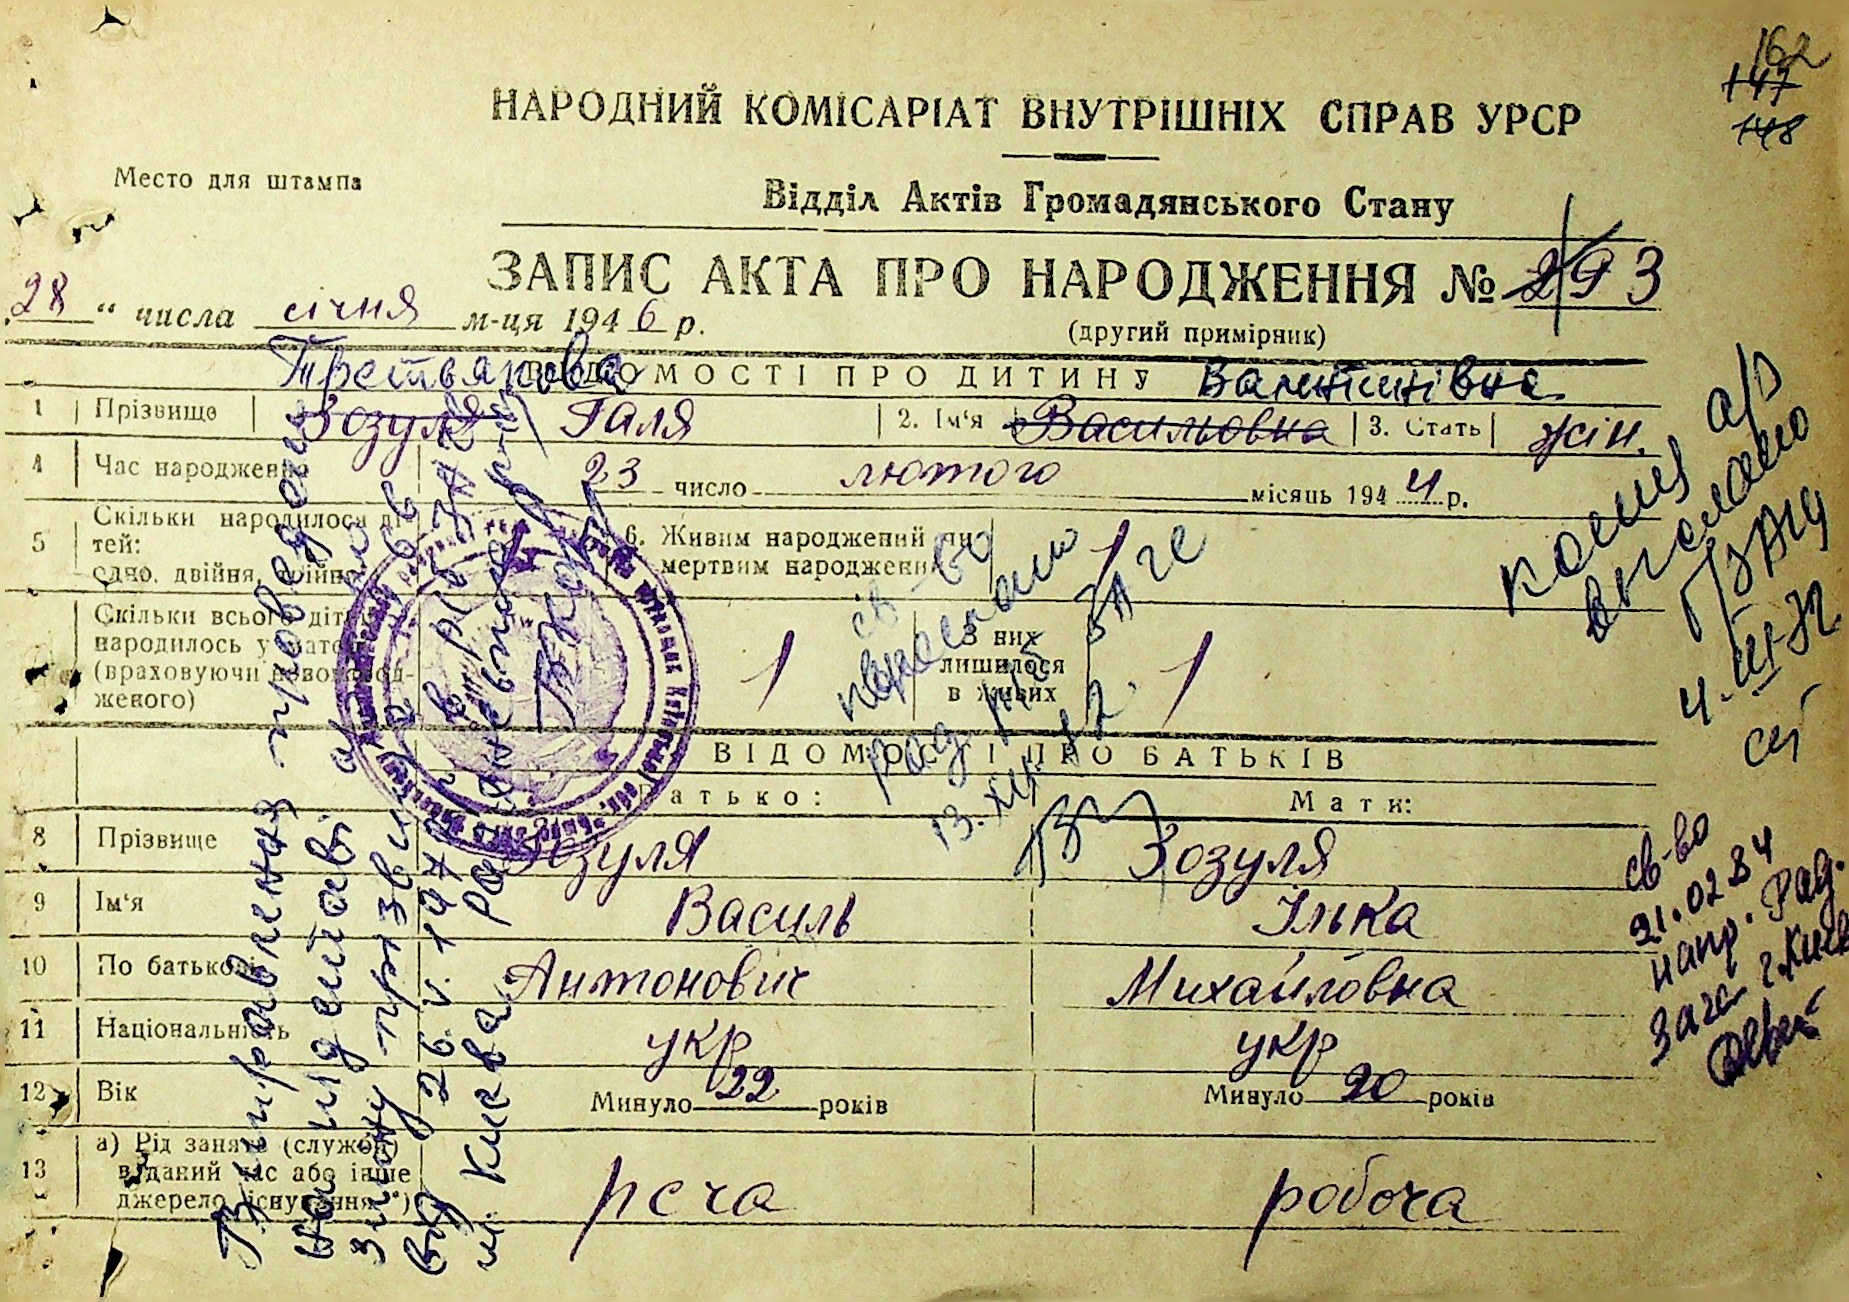 162
147
148
НАРОДНИЙ КОМІСАРІАТ ВНУТРІШНІХ СПРАВ УРСР
Место для штампа
Відділ Актів Громадянського Стану
ЗАПИС АКТА ПРО НАРОДЖЕННЯ № 293
28 “ числа січня м-ця 1946 р.
(другий примірник)
Третьякова
ВІДОМОСТІ ПРО ДИТИНУ
Валентинівна
1 Прізвище Зозуля Галя 2. Ім‘я Васильовна 3. Стать жін.
4 Час народження 23 число лютого місяць 1944 р.
5 Скільки народилося ді-
тей:
одно, двійня, трійня
1
6. Живим народжений чи
мертвим народжений
1
Скільки всього дітей
народилось у матері
(враховуючи новонарод-
женого)
1
З них
лишилося
в живих
1
ВІДОМОСТІ ПРО БАТЬКІВ
Батько: Мати:
8 Прізвище Зозуля Зозуля
9 Ім‘я Василь Ілька
10 По батькові Антонович Михайловна
11 Національність укр укр
12 Вік Минуло 22 років Минуло 20 років
13 а) Рід занять (служби)
в даний час або інше
джерело існування *)
рсча робоча
Виправлення проведені
на підставі а/з про
зміну прізвища
від 26.V.1972 р.
м. Києва
св-во
переслано
рад. РАЦС
13.XII.72.
копия а/з
выслано
ГЗАГС
4.III-72
св-во
21.02 84
напр. Рад.
Загс г. Киев